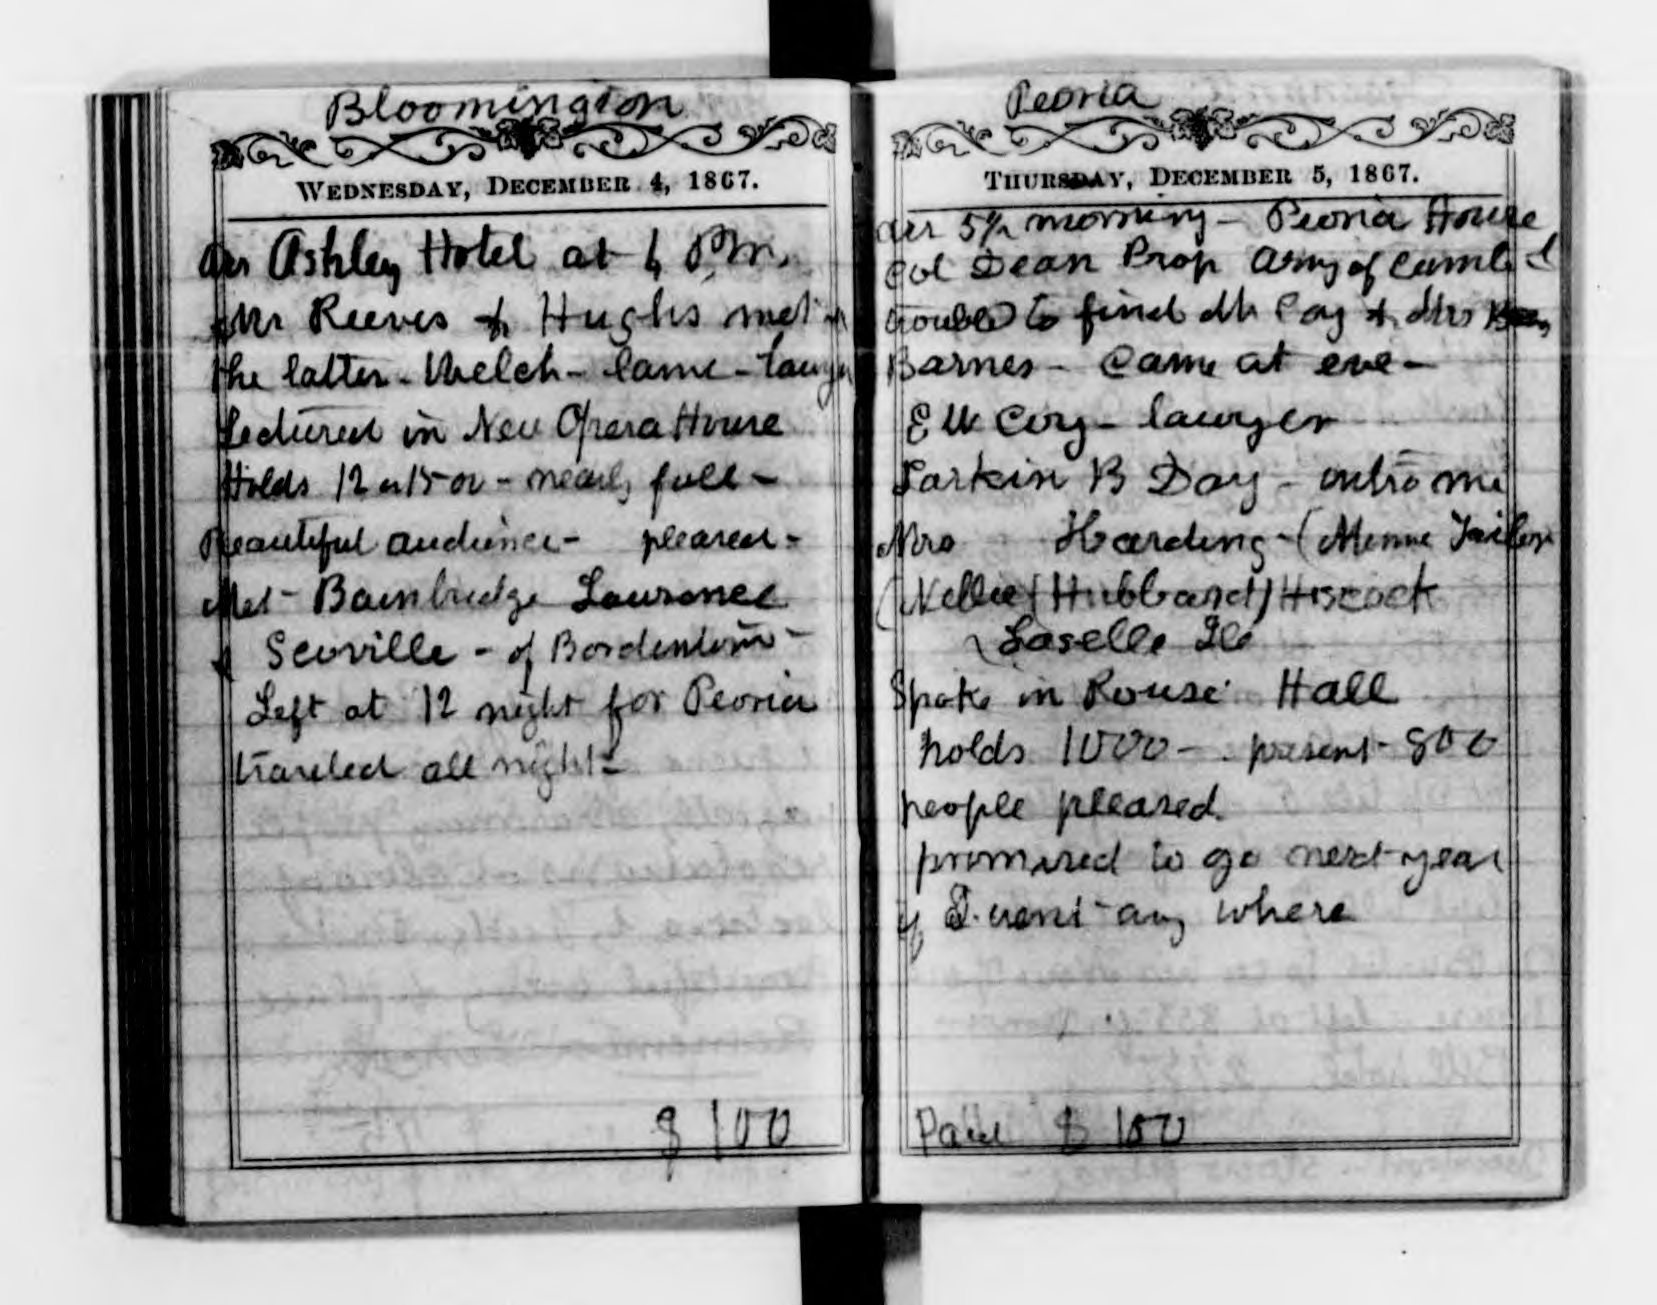 Bloomington
WEDNESDAY, DECEMBER 4, 1867.
Arr Ashley Hotel at 6 P.M.
Mr Reeves & Hughs met
the latter - Welch - lame -
Lectured in New Opera House
Holds 12 or 1500 - nearly full -
Beautiful audience - pleased -
Met - Bainbridge Lawrence
& Scoville - of Bordentown -
Left at 12 night for Peoria
traveled all night -
$100
Peoria
THURSDAY, DECEMBER 5, 1867.
arr 5½ morning - Peoria House
Col Dean Prop Army of Cumb
trouble to find Mr Coy & Mrs
Barnes - Came at eve -
E W Coy - lawyer
Larkin B Day - intro me
Mrs Harding - (Minnie
(Nellie (Hubbard) Hiscock
Laselle Ills
Spoke in Rouse Hall
holds 1000 - present - 800
people pleased.
promised to go next year
if I went any where
Paid $100